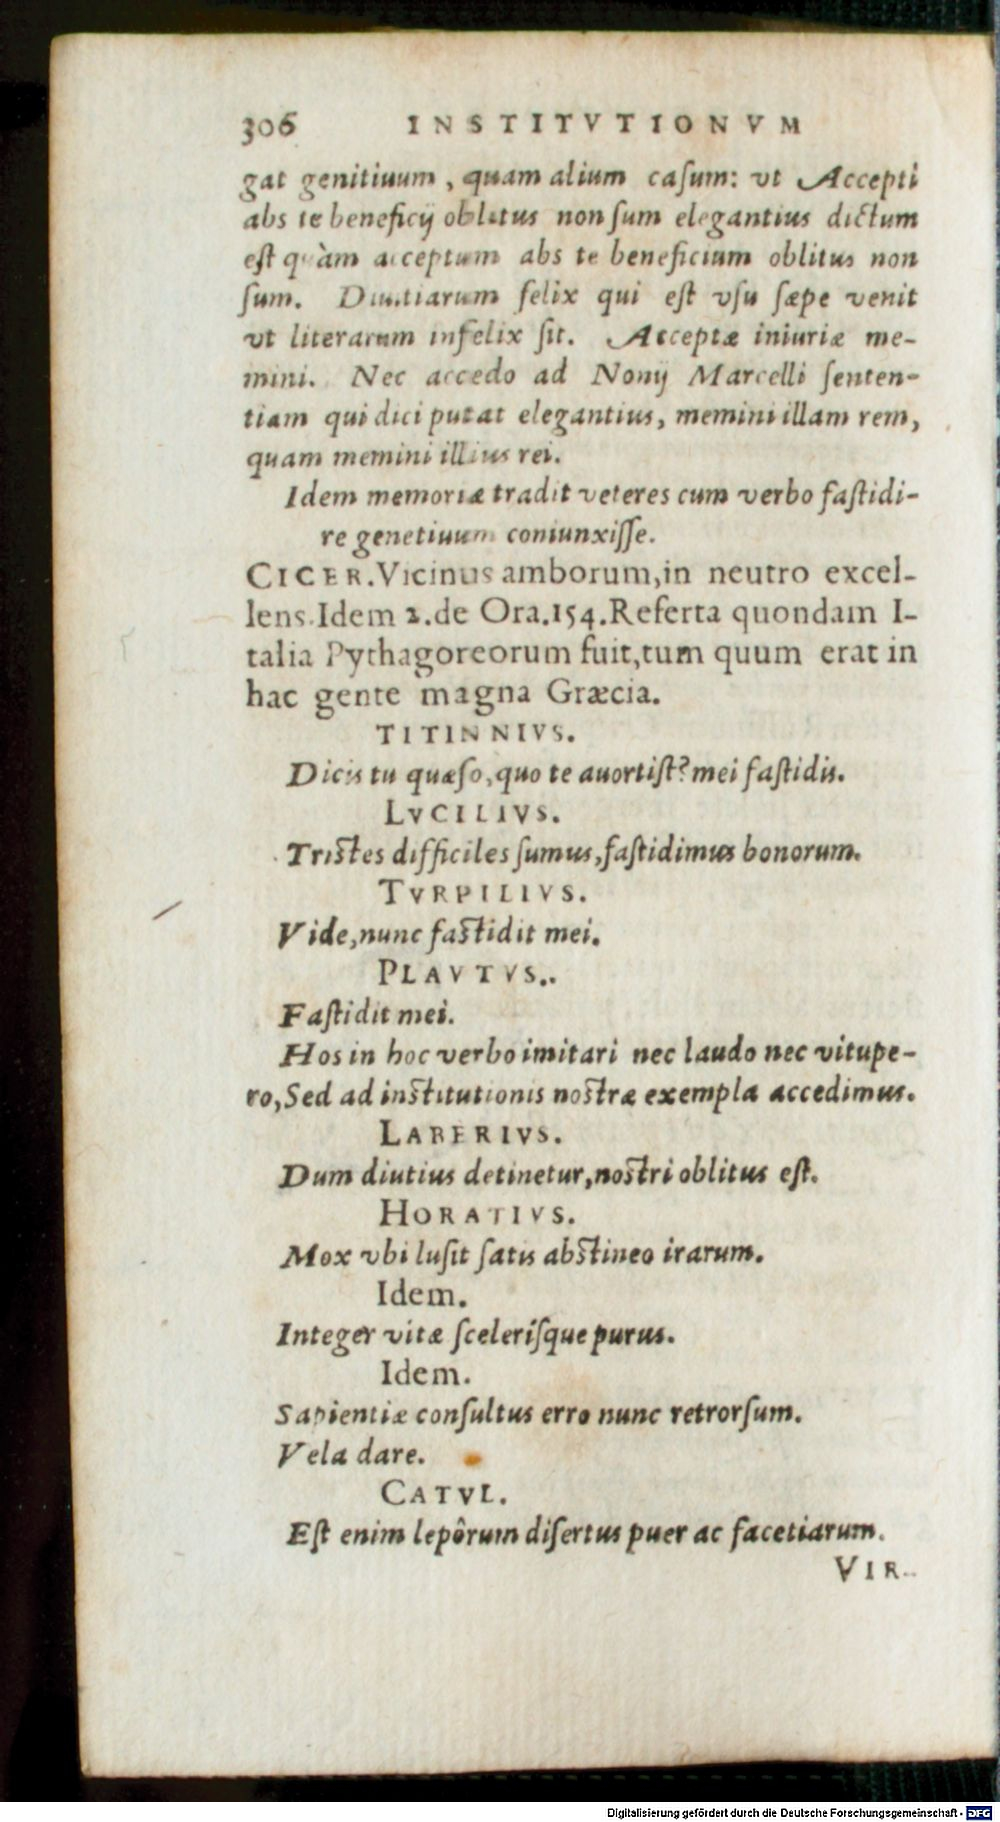 306 INSTITVTIONVM
gat genitiuum, quam alium caſum: vt Accepti
abs te beneficij oblitus non ſum elegantius dictum
eſt quàm acceptum abs te beneficium oblitus non
ſum. Diuitiarum felix qui eſt vſu ſæpe venit
vt literarum infelix ſit. Acceptæ iniuriæ me-
mini. Nec accedo ad Nonij Marcelli ſenten-
tiam qui dici putat elegantius, memini illam rem,
quam memini illius rei.
Idem memoriæ tradit veteres cum verbo faſtidi-
re genetiuum coniunxiſſe.
CICER. Vicinus amborum, in neutro excel-
lens. Idem 2. de Ora. 154. Referta quondam I-
talia Pythagoreorum fuit, tum quum erat in
hac gente magna Græcia.
TITINNIVS.
Dicis tu quæſo, quo te auortiſt? mei faſtidis.
LVCILIVS.
Triſtes difficiles ſumus, faſtidimus bonorum.
TVRPILIVS.
Vide, nunc faſtidit mei.
PLAVTVS..
Faſtidit mei.
Hos in hoc verbo imitari nec laudo nec vitupe-
ro, Sed ad inſtitutionis noſtræ exempla accedimus.
LABERIVS.
Dum diutius detinetur, noſtri oblitus eſt.
HORATIVS.
Mox vbi luſit ſatis abſtineo irarum.
Idem.
Integer vitæ ſceleriſque purus.
Idem.
Sapientiæ conſultus erro nunc retrorſum.
Vela dare.
CATVL.
Eſt enim lepôrum diſertus puer ac facetiarum.
VIR-
Digitalisierung gefördert durch die Deutsche Forschungsgemeinschaft - DFG